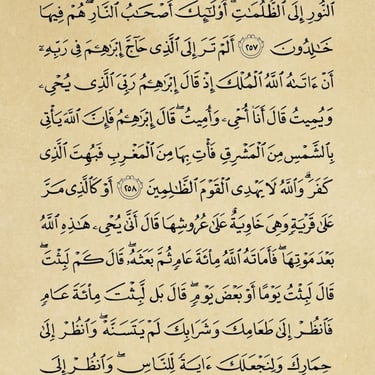 ٱلنُّورِ إِلَى ٱلظُّلُمَٰتِۗ أُو۟لَٰٓئِكَ أَصْحَٰبُ ٱلنَّارِۖ هُمْ فِيهَا
خَٰلِدُونَ ٢٥٧ أَلَمْ تَرَ إِلَى ٱلَّذِى حَآجَّ إِبْرَٰهِـۧمَ فِى رَبِّهِۦٓ
أَنْ ءَاتَىٰهُ ٱللَّهُ ٱلْمُلْكَ إِذْ قَالَ إِبْرَٰهِـۧمُ رَبِّىَ ٱلَّذِى يُحْىِۦ
وَيُمِيتُ قَالَ أَنَا۠ أُحْىِۦ وَأُمِيتُۖ قَالَ إِبْرَٰهِـۧمُ فَإِنَّ ٱللَّهَ يَأْتِى
بِٱلشَّمْسِ مِنَ ٱلْمَشْرِقِ فَأْتِ بِهَا مِنَ ٱلْمَغْرِبِ فَبُهِتَ ٱلَّذِى
كَفَرَۗ وَٱللَّهُ لَا يَهْدِى ٱلْقَوْمَ ٱلظَّٰلِمِينَ ٢٥٨ أَوْ كَٱلَّذِى مَرَّ
عَلَىٰ قَرْيَةٍ وَهِىَ خَاوِيَةٌ عَلَىٰ عُرُوشِهَا قَالَ أَنَّىٰ يُحْىِۦ هَٰذِهِ ٱللَّهُ
بَعْدَ مَوْتِهَاۖ فَأَمَاتَهُ ٱللَّهُ مِا۟ئَةَ عَامٍ ثُمَّ بَعَثَهُۥۖ قَالَ كَمْ لَبِثْتَۖ
قَالَ لَبِثْتُ يَوْمًا أَوْ بَعْضَ يَوْمٍۖ قَالَ بَل لَّبِثْتَ مِا۟ئَةَ عَامٍ
فَٱنظُرْ إِلَىٰ طَعَامِكَ وَشَرَابِكَ لَمْ يَتَسَنَّهْۖ وَٱنظُرْ إِلَىٰ
حِمَارِكَ وَلِنَجْعَلَكَ ءَايَةً لِّلنَّاسِۖ وَٱنظُرْ إِلَى